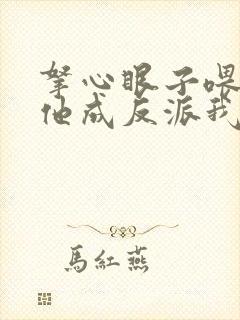 拏心眼子喂
他成反派我
馬紅燕